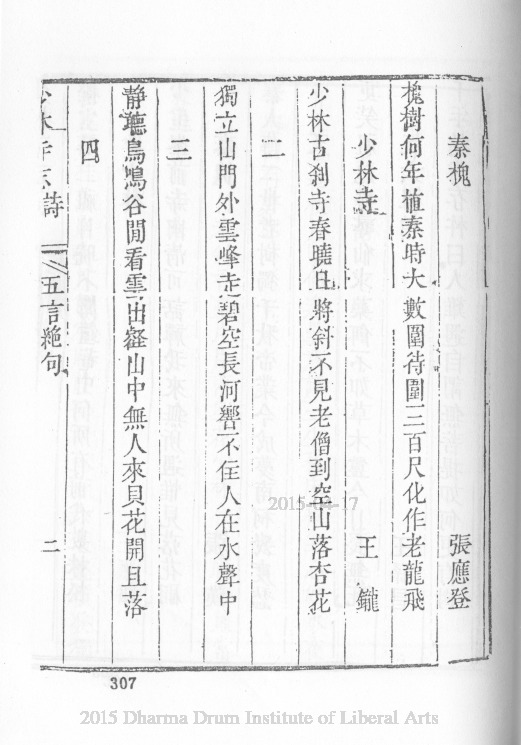 秦槐 張應登
槐樹何年植秦時大數圍待圍三百尺化作老龍飛
少林寺 王 鑨
少林古刹寺春曉日將斜不見老僧到空山落杏花
二
獨立山門外雲峰寺碧空長河響不住人在水聲中
三
静聽鳥鳴谷閒看雲出經山中無人來貝花開且落
四
少林寺志詩 五言絶句 二
2015-04-17
307
2015 Dharma Drum Institute of Liberal Arts